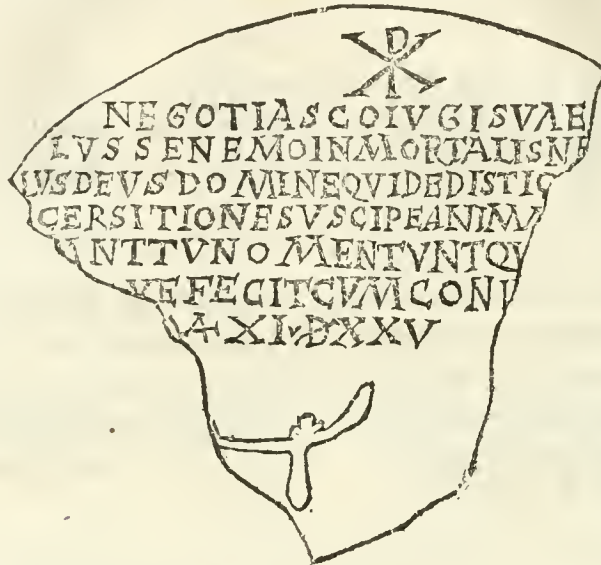 NEGOTIASCOIVGISVAE
LVSSENEMOINMORTALISNE
LVSDEVSDOMINEQVIDEDISTIC
CERSITIONESVSCIPEANIMA
ANTTVNOMENTVNTQV
VEFECITCVMCONI
XI
XXV